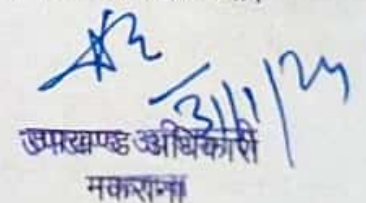 31/1/24
उपखण्ड अधिकारी
मकराना